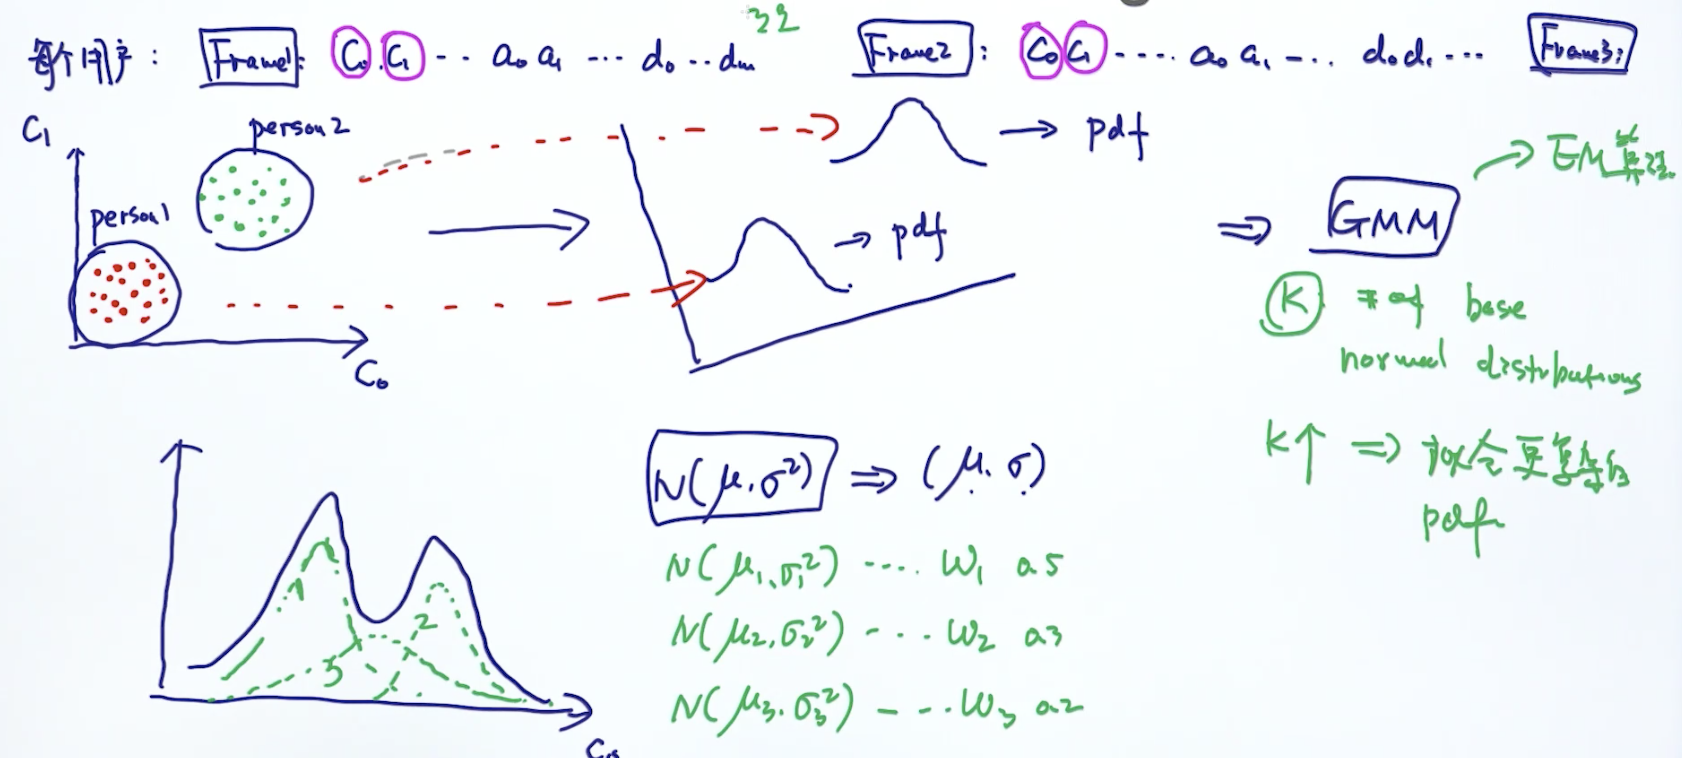 39
每个闪声: Frame1: C₀. C₁ -- a₀ a₁ ... d₀ .. dₘ Frame2: C₀ C₁ ---- a₀ a₁ -... d₀ d₁ ... Frame3:
C₁
person2
person1
C₀
→ pdf
→ pdf
⇒ GMM → EM算法.
K # of base
normal distributions
K↑ ⇒ 拟合更复杂的
pdf
N(μ, σ²) ⇒ (μ, σ)
N(μ₁, σ₁²) .... W₁ 0.5
N(μ₂, σ₂²) -... W₂ 0.3
N(μ₃, σ₃²) -... W₃ 0.2
1
2
3